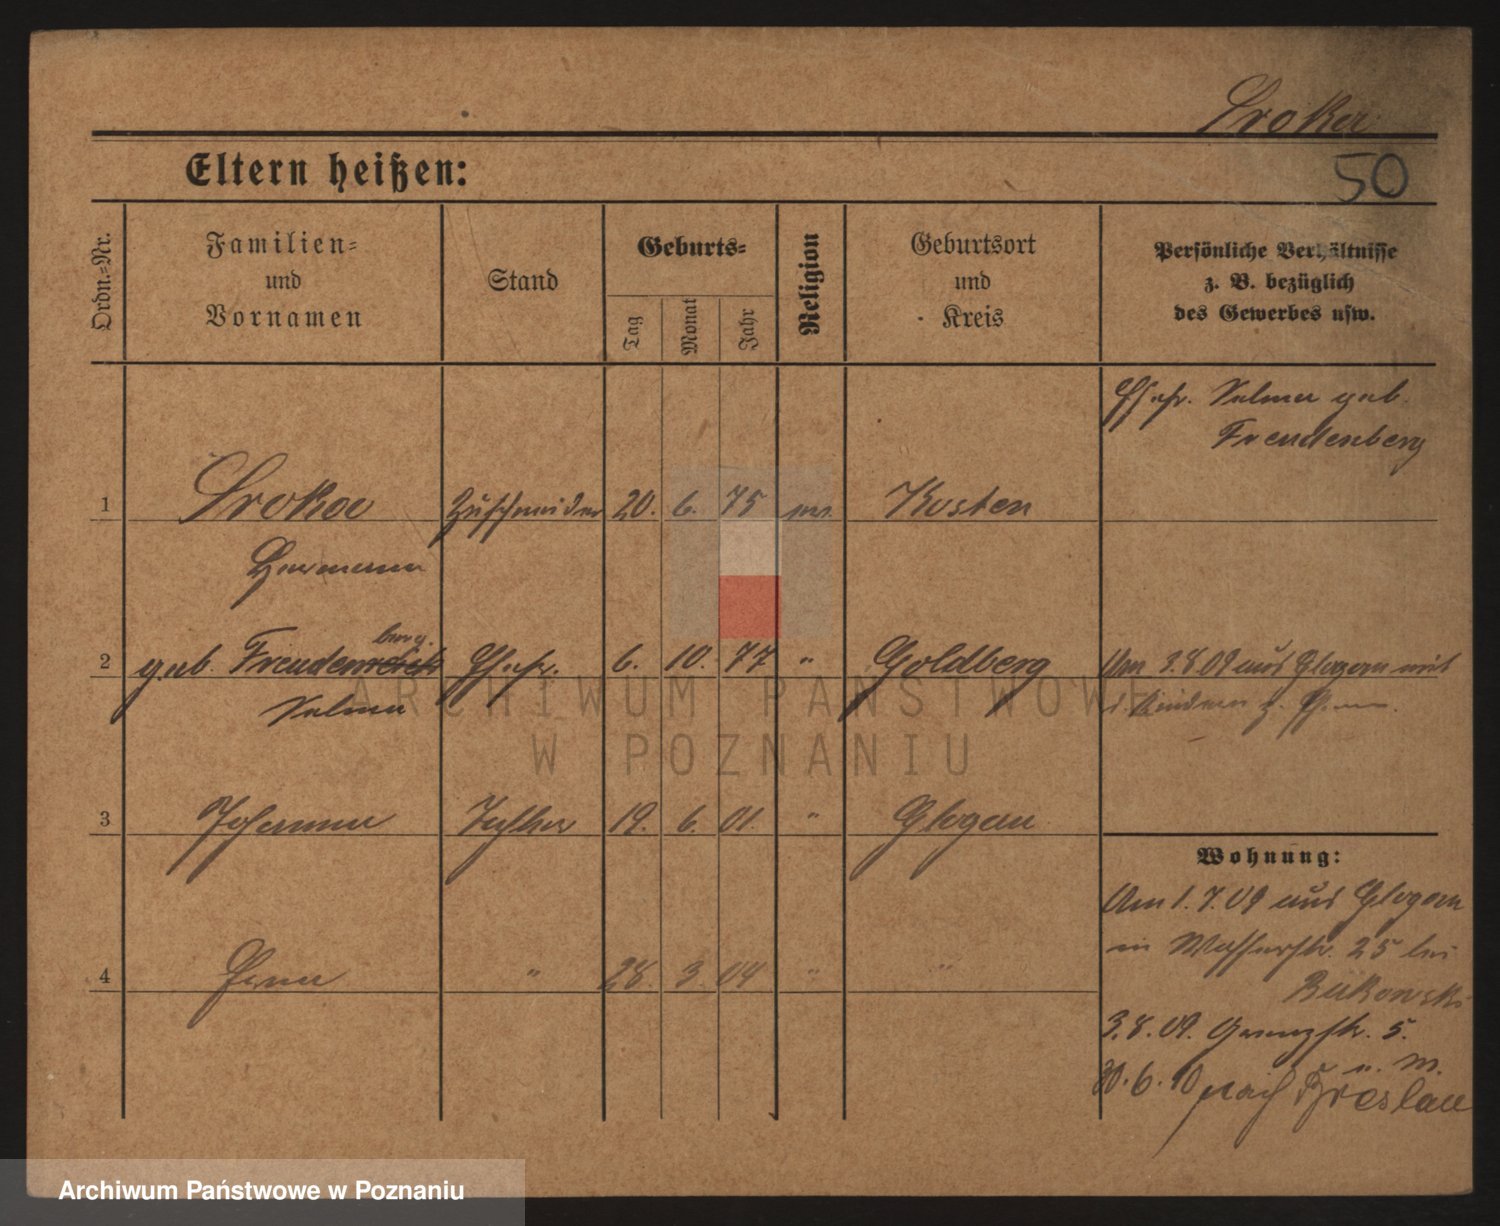 Sroka
Eltern heißen:
50
Ordn.=Nr.
Familien=
und
Vornamen
Stand
Geburts=
Tag
Monat
Jahr
Religion
Geburtsort
und
Kreis
Persönliche Verhältnisse
z. B. bezüglich
des Gewerbes usw.
Ehefr. Selma geb.
Freudenberg
1 Sroka Zuschneider 20. 6. 75 Kosten
Hermann
berg.
2 geb. Freuden Ehefr. 6. 10. 77 " Goldberg
Selma
Am 3.8.09 aus Glogau mit
Kindern z. Ehem.
ARCHIWUM PAŃSTWOWE
W POZNANIU
3 Johanna Tochter 19. 6. 01. " Glogau
4 Erna " 28. 3. 04 " "
Wohnung:
Am 1.7.09 aus Glogau
in Wasserstr. 25 bei
Bukowski
3.8.09. Grenzstr. 5.
u. M.
30.6.10 nach Breslau
Archiwum Państwowe w Poznaniu